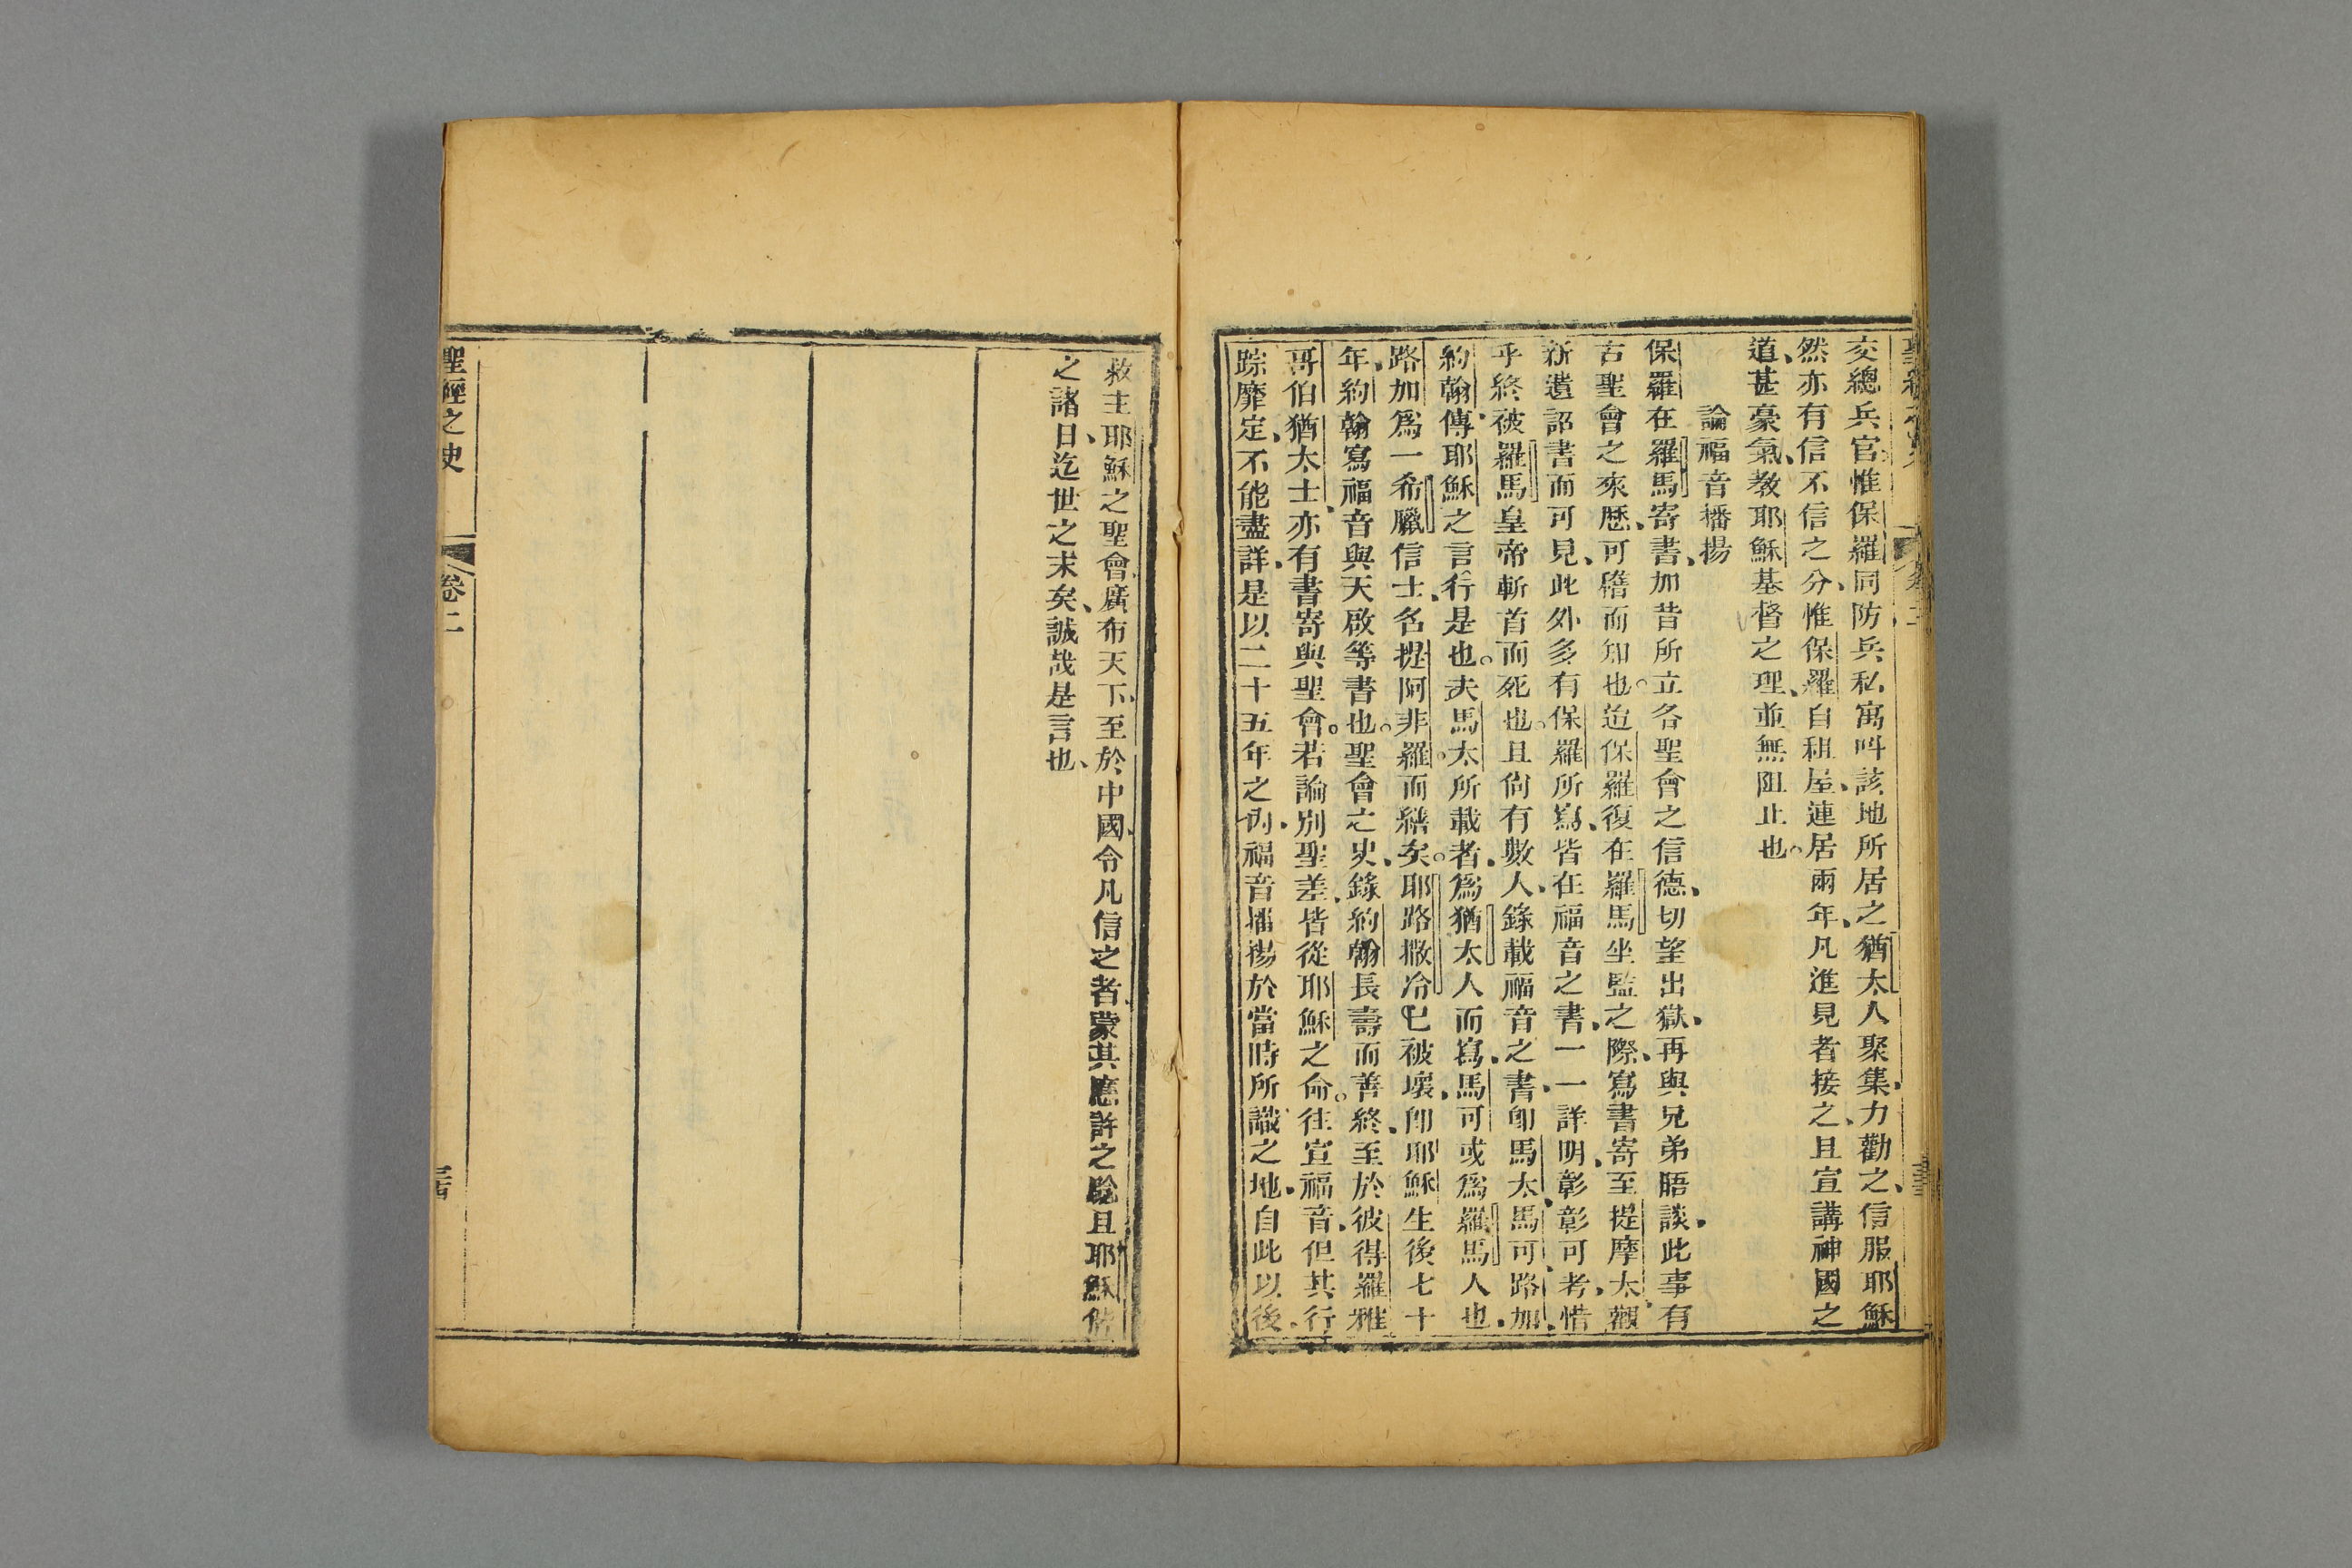 交總兵官惟保羅同防兵私寓叫該地所居之猶太人聚集、力勸之、信服耶穌
然亦有信不信之分、惟保羅自租屋、連居兩年、凡進見者接之、且宣講神國之
道、甚豪氣、教耶穌基督之理、並無阻止也。
論福音播揚
保羅在羅馬寄書、加昔所立各聖會之信德、切望出獄、再與兄弟晤談、此事有
古聖會之來歷、可稽而知也。迨保羅復在羅馬坐監之際、寫書寄至提摩太、觀
新遺詔書而可見、此外多有保羅所寫、皆在福音之書、一一詳明、彰彰可考、惜
乎終被羅馬皇帝斬首而死也。且尙有數人、錄載福音之書、卽馬太、馬可、路加、
約翰、傳耶穌之言行是也。夫馬太所載者、爲猶太人而寫、馬可或爲羅馬人也、
路加爲一希臘信士、名提阿非羅。而繕矣。耶路撒冷已被壞、卽耶穌生後七十
年、約翰寫福音與天啟等書也。聖會之史、錄約翰長壽而善終、至於彼得羅雅
哥伯猶太士、亦有書寄與聖會。若論別聖差、皆從耶穌之命。往宣福音、但其行
踪靡定、不能盡詳、是以二十五年之內、福音播揚於當時所識之地、自此以後、
救主耶穌之聖會、廣布天下、至於中國、令凡信之者、蒙其應許之 且耶穌
之諸日、迄世之末矣、誠哉是言也、
聖經之史
卷二